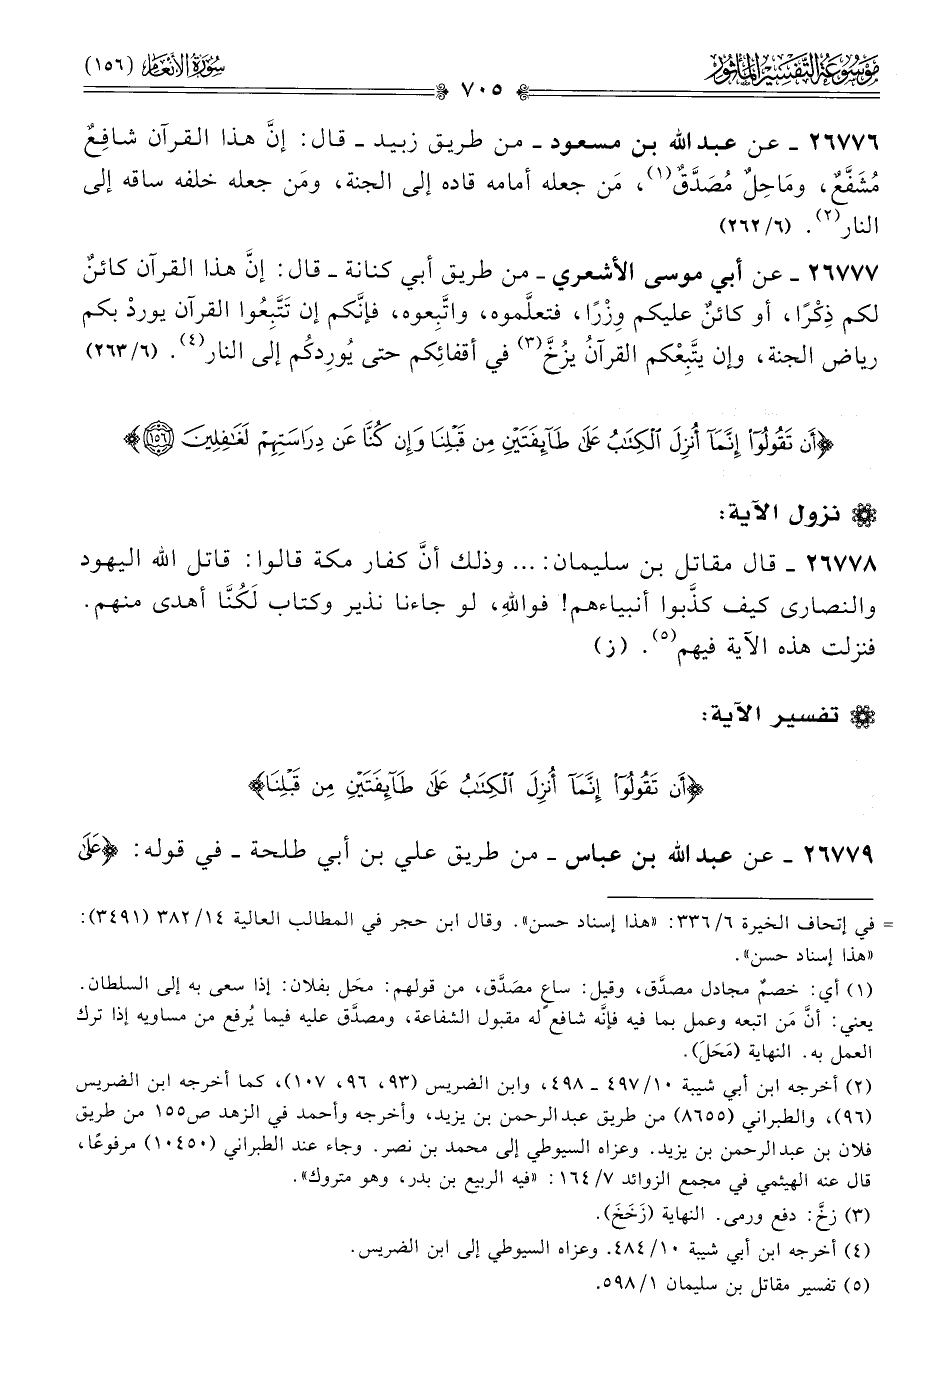 موسوعة التفسير المأثور
سورة الأنعام (١٥٦)
٧٠٥
٢٦٧٧٦ ـ عن عبد الله بن مسعود ـ من طريق زبيد ـ قال: إنَّ هذا القرآن شافِعٌ
مُشَفَّعٌ، ومَاحِلٌ مُصَدَّقٌ(١)، مَن جعله أمامه قاده إلى الجنة، ومَن جعله خلفه ساقه إلى
النار(٢). (٦/٢٦٢)
٢٦٧٧٧ ـ عن أبي موسى الأشعري ـ من طريق أبي كنانة ـ قال: إنَّ هذا القرآن كائنٌ
لكم ذِكْرًا، أو كائنٌ عليكم وِزْرًا، فتعلَّموه، واتَّبِعوه، فإنَّكم إن تَتَّبِعُوا القرآن يورِدْ بكم
رياض الجنة، وإن يتَّبِعْكم القرآنُ يزُخَّ(٣) في أقفائِكم حتى يُورِدكُم إلى النار(٤). (٦/٢٦٣)
﴿أَن تَقُولُوٓا۟ إِنَّمَآ أُنزِلَ ٱلْكِتَٰبُ عَلَىٰ طَآئِفَتَيْنِ مِن قَبْلِنَا وَإِن كُنَّا عَن دِرَاسَتِهِمْ لَغَٰفِلِينَ ١٥٦﴾
نزول الآية:
٢٦٧٧٨ ـ قال مقاتل بن سليمان: ... وذلك أنَّ كفار مكة قالوا: قاتل الله اليهود
والنصارى كيف كذَّبوا أنبياءهم! فواللهِ، لو جاءنا نذير وكتاب لَكُنَّا أهدى منهم.
فنزلت هذه الآية فيهم(٥). (ز)
تفسير الآية:
﴿أَن تَقُولُوٓا۟ إِنَّمَآ أُنزِلَ ٱلْكِتَٰبُ عَلَىٰ طَآئِفَتَيْنِ مِن قَبْلِنَا﴾
٢٦٧٧٩ ـ عن عبد الله بن عباس ـ من طريق علي بن أبي طلحة ـ في قوله: ﴿عَلَىٰ
= في إتحاف الخيرة ٦/٣٣٦: «هذا إسناد حسن». وقال ابن حجر في المطالب العالية ١٤/٣٨٢ (٣٤٩١):
«هذا إسناد حسن».
(١) أي: خصمٌ مجادل مصدَّق، وقيل: ساعٍ مصَدَّق، من قولهم: محَل بفلان: إذا سعى به إلى السلطان.
يعني: أنَّ مَن اتبعه وعمل بما فيه فإنَّه شافع له مقبول الشفاعة، ومصدَّق عليه فيما يُرفع من مساويه إذا ترك
العمل به. النهاية (مَحَلَ).
(٢) أخرجه ابن أبي شيبة ١٠/٤٩٧ ـ ٤٩٨، وابن الضريس (٩٣، ٩٦، ١٠٧)، كما أخرجه ابن الضريس
(٩٦)، والطبراني (٨٦٥٥) من طريق عبدالرحمن بن يزيد، وأخرجه وأحمد في الزهد ص١٥٥ من طريق
فلان بن عبدالرحمن بن يزيد. وعزاه السيوطي إلى محمد بن نصر. وجاء عند الطبراني (١٠٤٥٠) مرفوعًا،
قال عنه الهيثمي في مجمع الزوائد ٧/١٦٤: «فيه الربيع بن بدر، وهو متروك».
(٣) زخَّ: دفع ورمى. النهاية (زَخَخَ).
(٤) أخرجه ابن أبي شيبة ١٠/٤٨٤. وعزاه السيوطي إلى ابن الضريس.
(٥) تفسير مقاتل بن سليمان ١/٥٩٨.